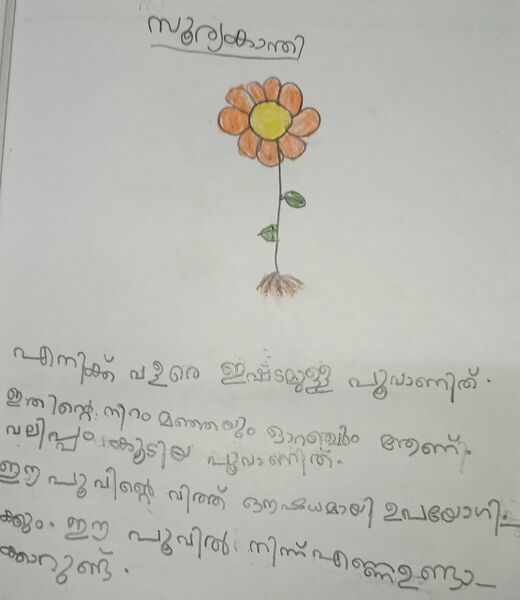 സൂര്യകാന്തി
എനിക്ക് വളരെ ഇഷ്ടമുള്ള പൂവാണിത്.
ഇതിന്റെ നിറം മഞ്ഞയും ഓറഞ്ചും ആണ്.
വലിപ്പം കൂടിയ പൂവാണിത്.
ഈ പൂവിന്റെ വിത്ത് ഔഷധമായി ഉപയോഗി-
ക്കും. ഈ പൂവിൽ നിന്ന് എണ്ണ ഉണ്ടാ-
ക്കാറുണ്ട്.